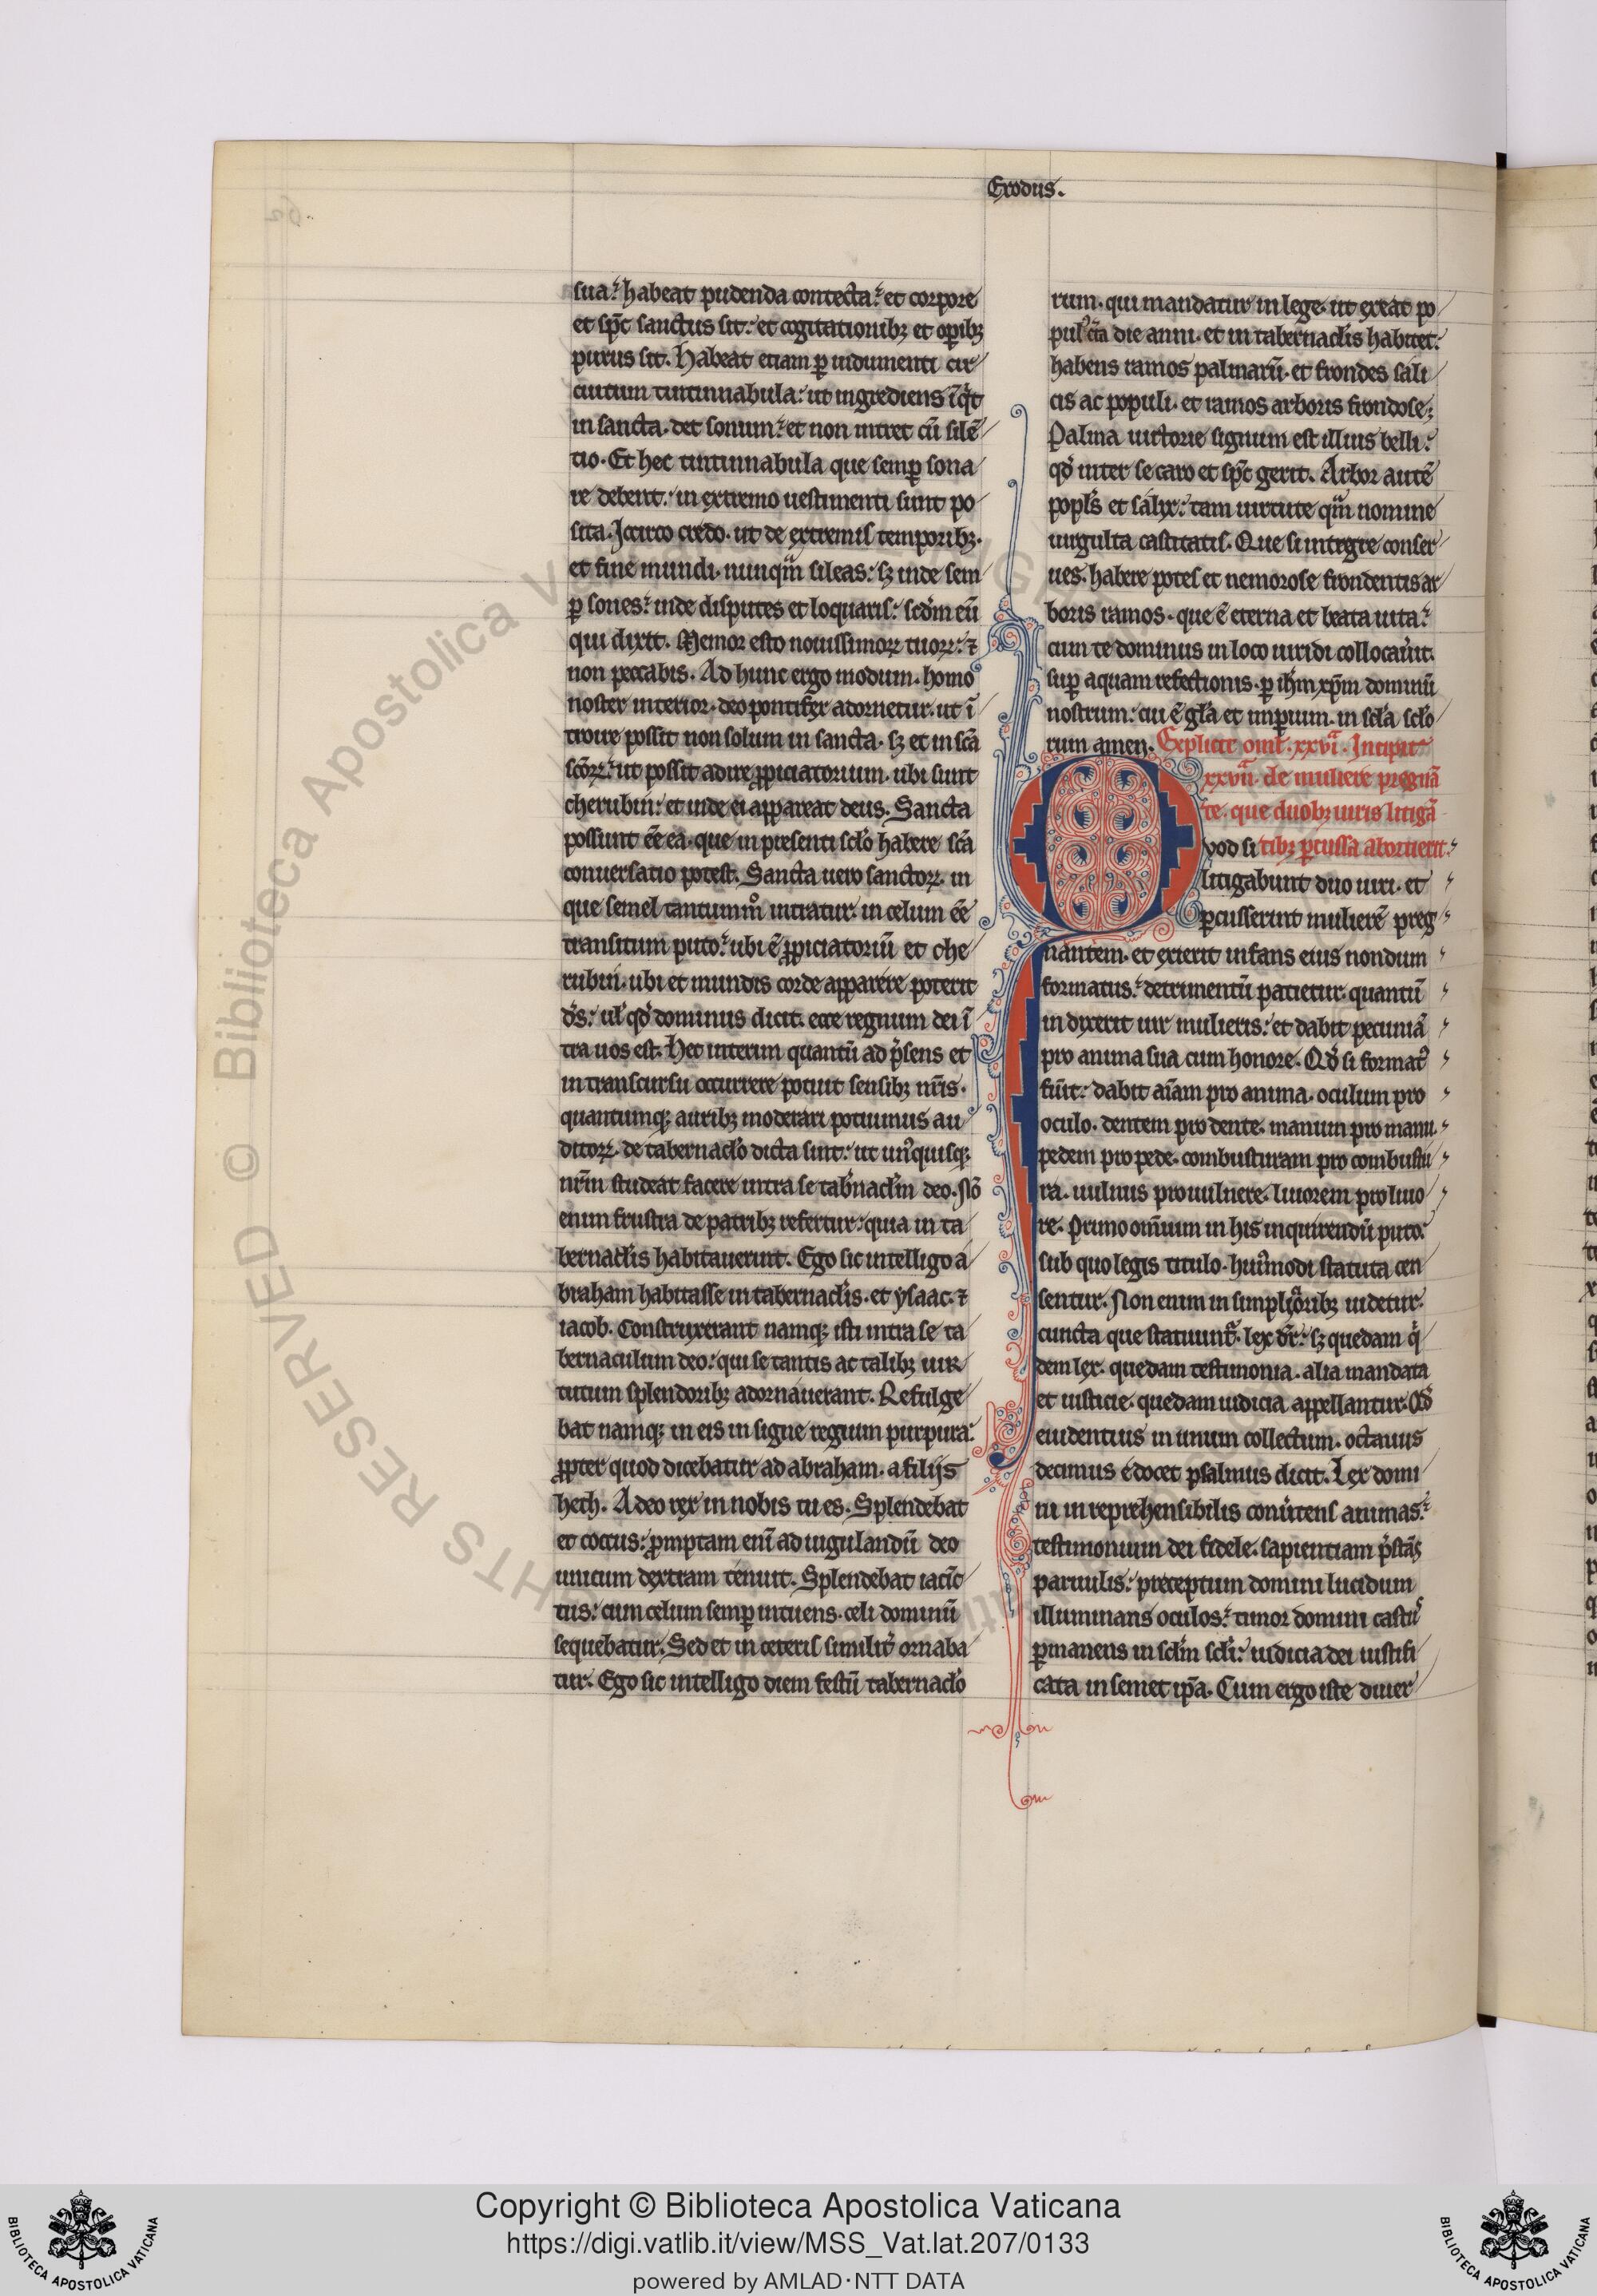 Exodus.
sua: habeat pudenda contecta: et corpore
et sp̄c sanctus sit: et cogitationibꝫ et oꝑibꝫ
purus sit. Habeat etiam ꝑ indumenti cir
cuitum tintinnabula: ut ingrediens īq̇t
in sancta. det sonum: et non intret cū silē
tio. Et hec tintinnabula que semꝑ sona
re debent: in extremo uestimenti sunt po
sita. Iccirco credo. ut de extremis temporibꝫ.
et fine mundi. nunqͣm sileas: sꝫ inde sem
ꝑ sones: inde disputes et loquaris: scd̄m eū
qui dixit. Memor esto nouissimoꝝ tuoꝝ: ⁊
non peccabis. Ad hunc ergo modum. homo
noster interior. deo pontifex adornetur. ut ī
troire possit non solum in sancta. sꝫ et in sc̄a
sc̄oꝝ: ut possit adire ꝓpiciatorium. ubi sunt
cherubin: et inde ei appareat deus. Sancta
possunt eē ea. que in presenti sclo habere sc̄a
conuersatio potest. Sancta uero sanctoꝝ. in
que semel tantummͦ intratur. in celum eē
transitum puto: ubi ē ꝓpiciatoriū et che
rubin. ubi et mundis corde apparere poterit
d̄s: ul' qd̓ dominus dicit. ecce regnum dei ī
tra uos est. Hec interim quantū ad p̓sens et
in transcursu occurrere potuit sensibꝫ nr̄is.
quantumqꝫ auribꝫ moderari potuimus au
ditoꝝ. de tabernaclo dicta sunt: ut unꝰquisqꝫ
nr̄m studeat facere intra se tab̓naclm deo. Nō
enim frustra de patribꝫ refertur: quia in ta
bernaclis habitauerunt. Ego sic intelligo a
braham habitasse in tabernaclis. et ysaac. ⁊
iacob. Construxerant namqꝫ isti intra se ta
bernaculum deo: qui se tantis ac talibꝫ uir
tutum splendoribꝫ adornauerant. Refulge
bat namqꝫ in eis in signe regium purpura:
ꝓpter quod dicebatur ad abraham. a filijs
heth. A deo rex in nobis tu es. Splendebat
et coccus: ꝓmptam enī ad iugulandū deo
unicum dextram tenuit. Splendebat iacīc
tus: cum celum semꝑ intuens. celi dominū
sequebatur. Sed et in ceteris similit̓ ornaba
tur. Ego sic intelligo diem festū tabernaclo
rum. qui mandatur in lege. ut exeat po
pulꝰ c̓ta die anni. et in tabernaclis habitet:
habens ramos palmarū. et frondes sali
cis ac populi. et ramos arboris frondose;
Palma uictorie signum est illius belli:
qd̓ inter se caro et sp̄c gerit. Arbor autē
popl's et salix: tam uirtute qͣm nomine
uirgulta castitatis. Que si integre conser
ues. habere potes et nemorose frondentis ar
boris ramos. que ē eterna et beata uita:
cum te dominus in loco uiridi collocau̓it.
suꝑ aquam refectionis. ꝑ ih̄m xp̄m dominū
nostrum: cui ē gl̓a et imꝑium. in scl̓a scl̓o
rum amen. Explicit oml̓. xxvi. Incipit
xxvii. de muliere pregnā
te. que duobꝫ uiris litigā
tibꝫ ꝑcussa abortierit.
Qvod si
litigabunt duo uiri. et
ꝑcusserint mulierē preg
nantem. et exierit infans eius nondum
formatus: detrimentū patietur. quantū
indixerit uir mulieris: et dabit pecuniā
pro anima sua cum honore. Qd̓ si formatꝰ
fu̓it: dabit aīam pro anima. oculum pro
oculo. dentem pro dente. manum pro manu.
pedem pro pede. combusturam pro combustu
ra. uulnus pro uulnere. liuorem pro liuo
re. Primo omīum in his inquirendū puto:
sub quo legis titulo. huiꝰmodi statuta cen
sentur. Non enim in simplicͣoribꝫ uidetur.
cuncta que statuuntᷣ. lex dr̄: sꝫ quedam q̓
dem lex. quedam testimonia. alia mandata
et iusticie. quedam iudicia appellantur. Qd̓
euidentius in unum collectum. octauus
decimus edocet psalmus dicit. Lex domi
ni in reprehensibilis conu̓tens animas:
testimonium dei fidele. sapientiam p̓stās
paruulis: preceptum domini lucidum
illuminans oculos: timor domini castꝰ
ꝑmanens in scl̓m scl̓i: iudicia dei iustifi
cata in semet ip̄a. Cum ergo iste diuer
© Biblioteca Apostolica Vaticana
Copyright © Biblioteca Apostolica Vaticana
https://digi.vatlib.it/view/MSS_Vat.lat.207/0133
powered by AMLAD·NTT DATA
BIBLIOTECA APOSTOLICA VATICANA
BIBLIOTECA APOSTOLICA VATICANA